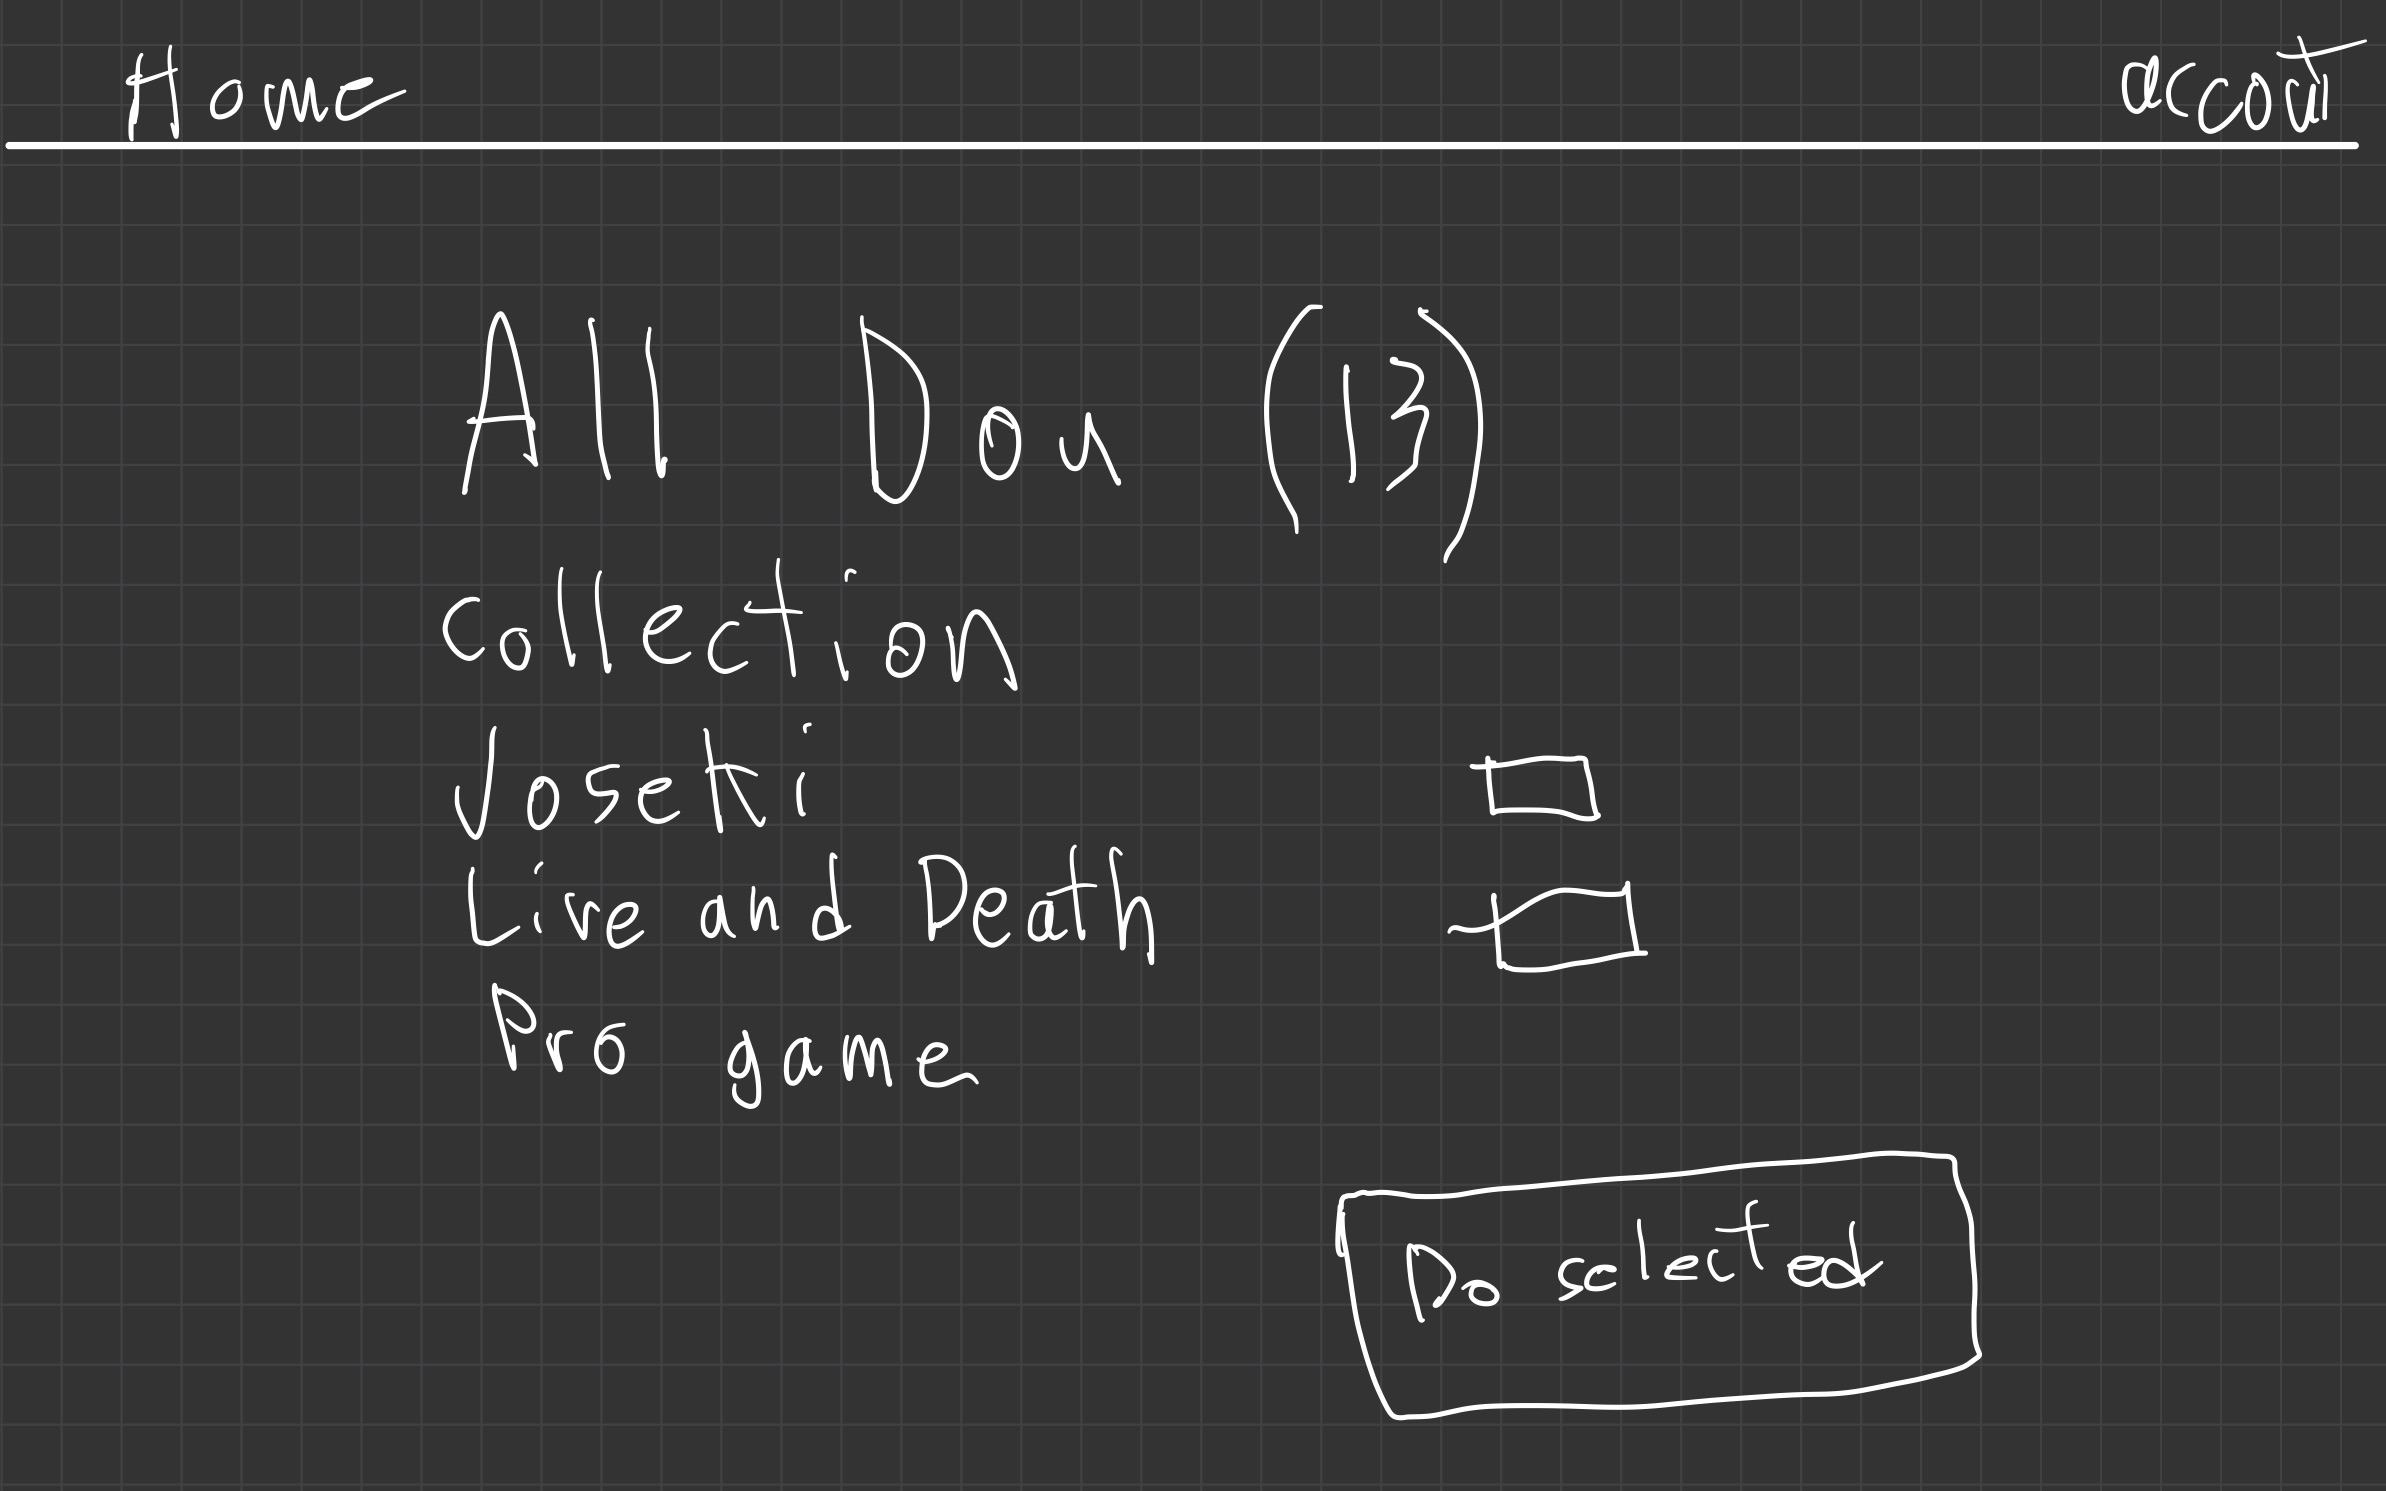 Home account
All Dou (13)
Collection
Joseki
Live and Death
Pro game
Do selected